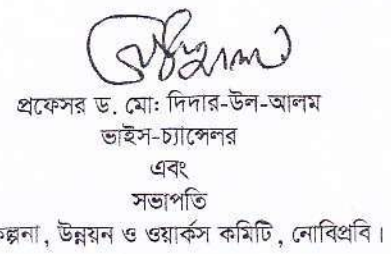 প্রফেসর ড. মোঃ দিদার-উল-আলম
ভাইস-চ্যান্সেলর
এবং
সভাপতি
উন্নয়ন ও ওয়ার্কস কমিটি, নোবিপ্রবি।